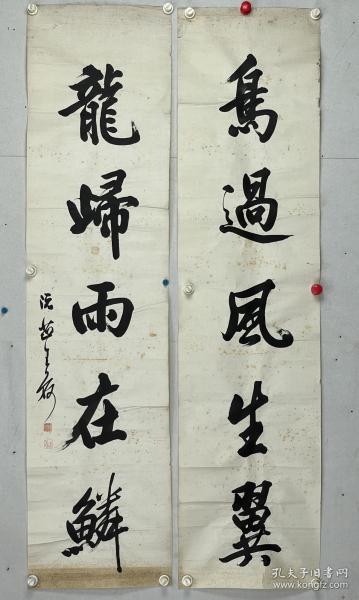 鳥過風生翼
龍歸雨在鱗
孔夫子旧书网
www.kongfz.com